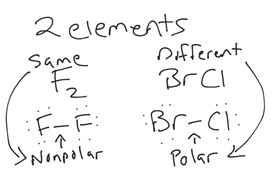 2 elements
Same
F2
F–F
Nonpolar
Different
BrCl
Br–Cl
Polar